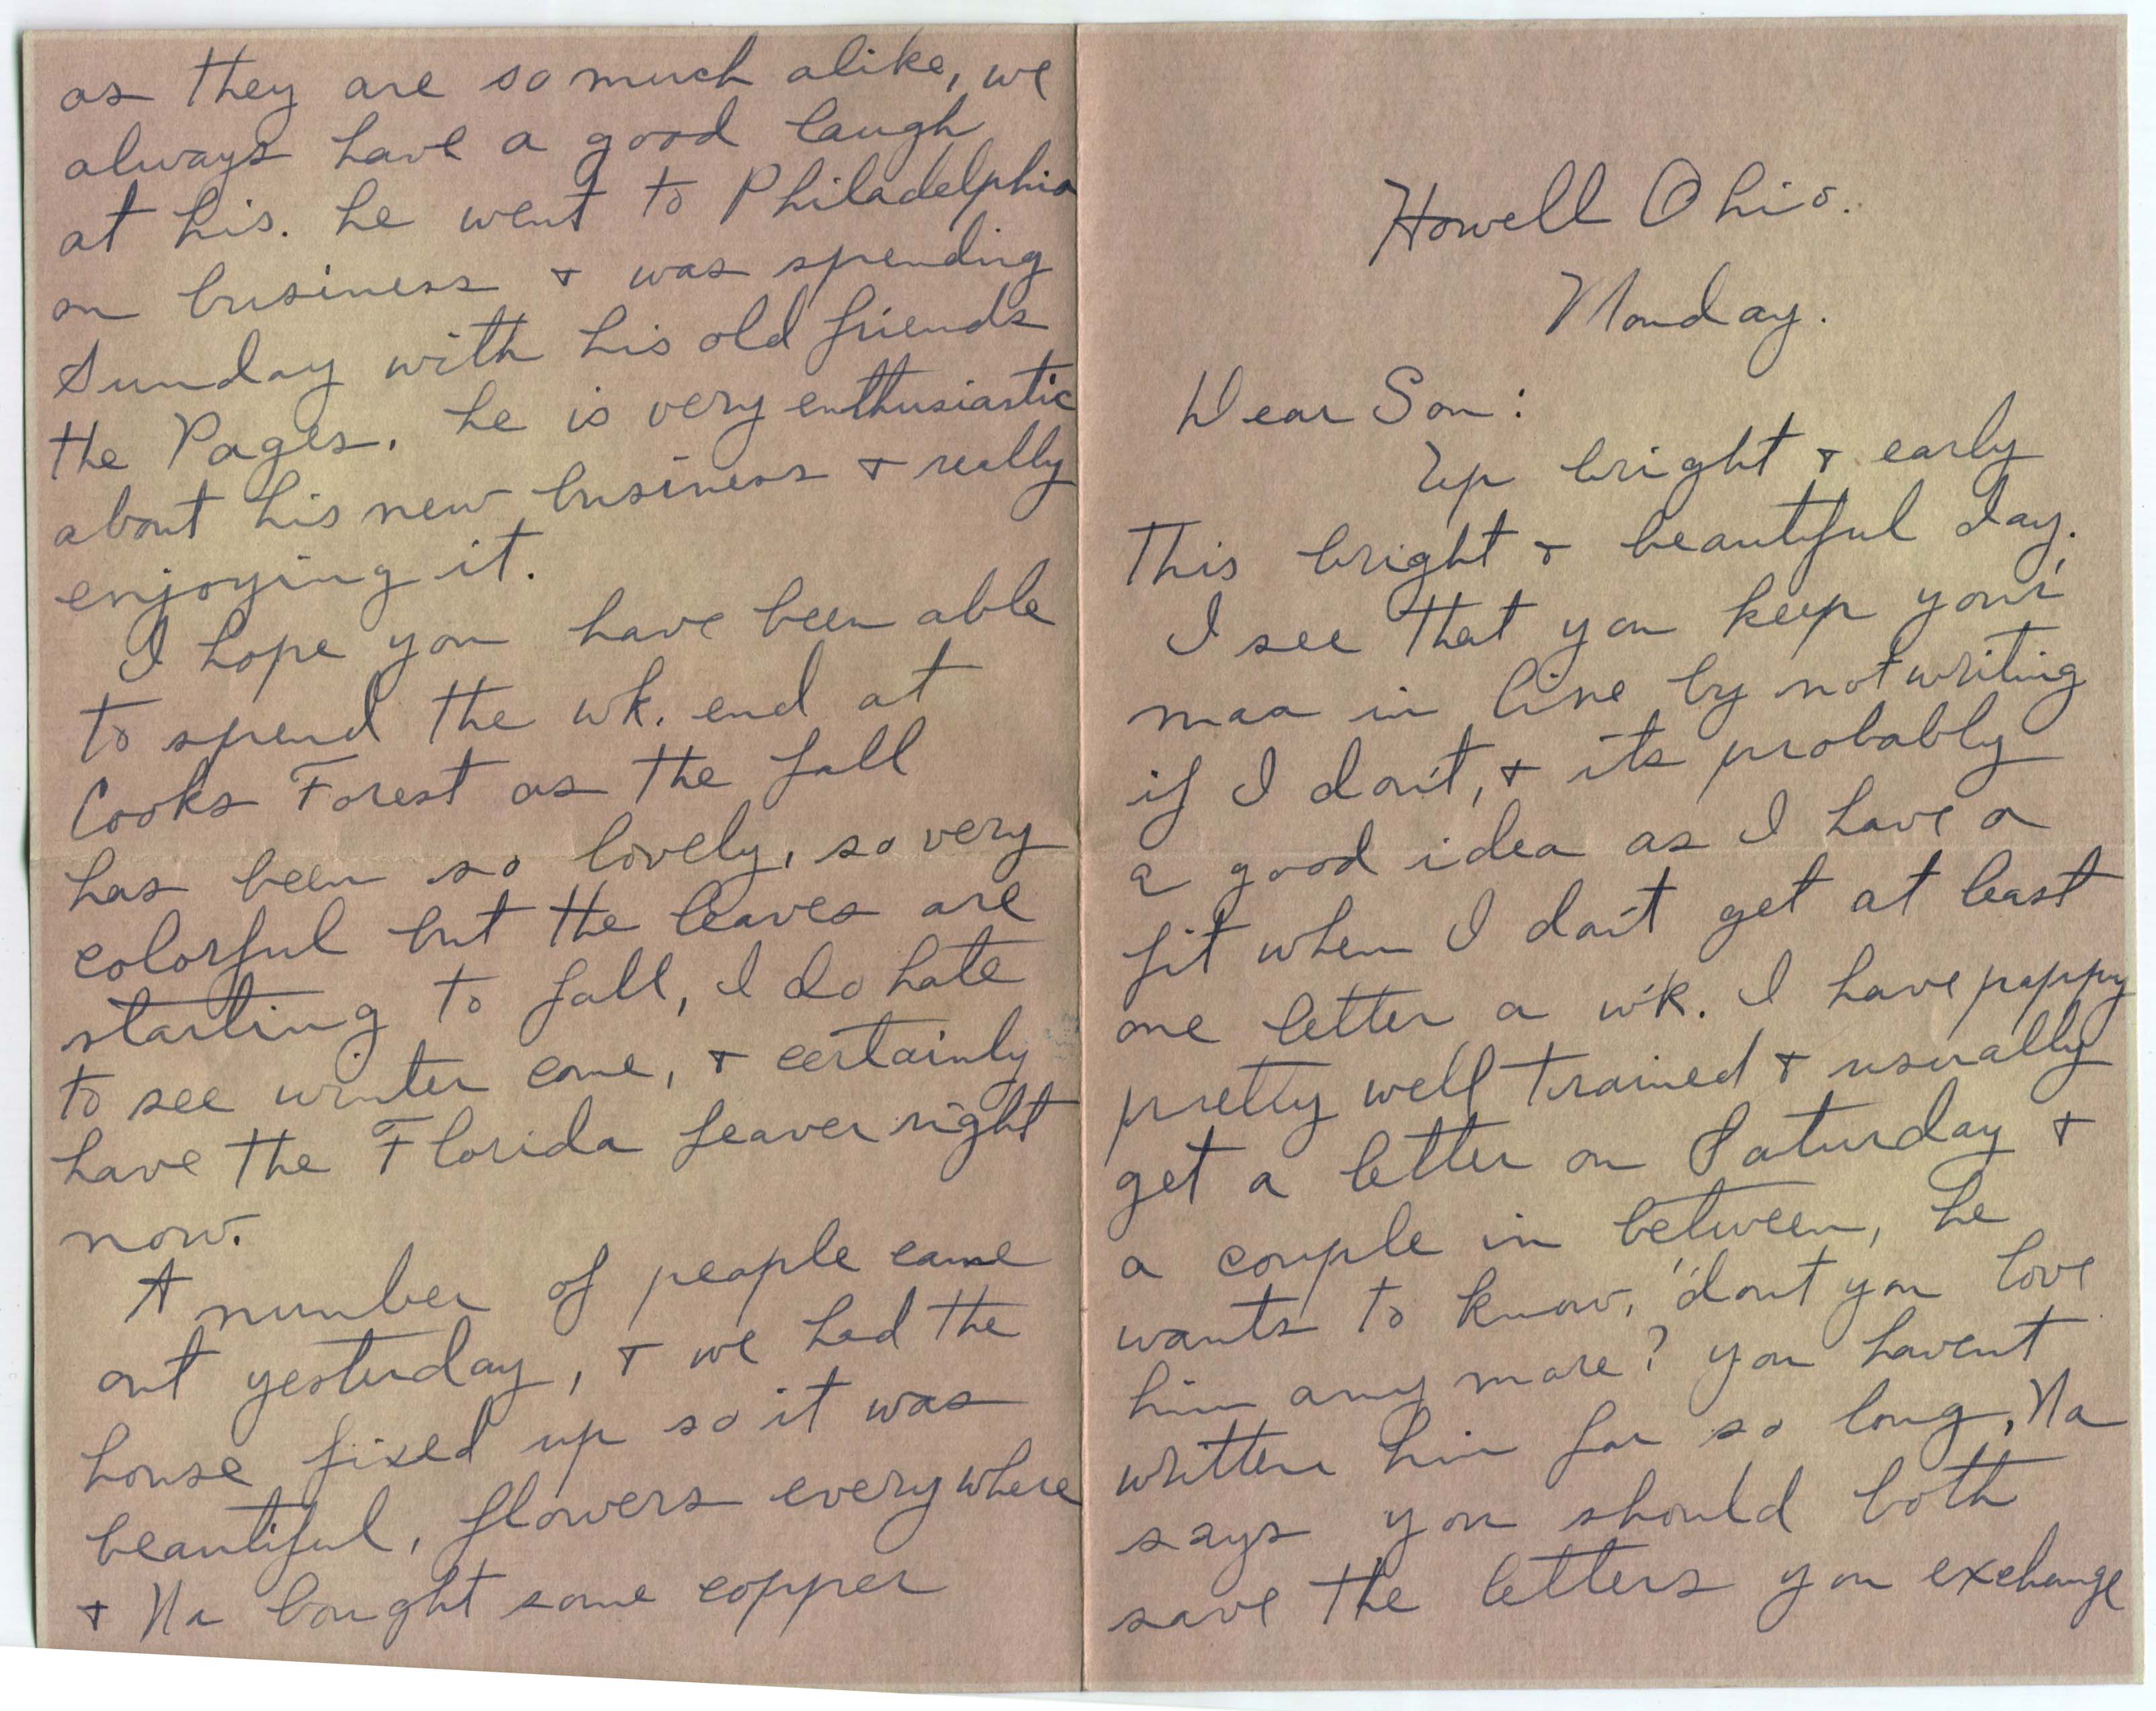 Howell Ohio.
Monday.
Dear Son:
Up bright & early
This bright & beautiful day.
I see that you keep your
maa in line by not writing
if I don't, & its probably
a good idea as I have a
fit when I don't get at least
one letter a wk. I have pappy
pretty well trained & usually
get a letter on Saturday &
a couple in between, he
wants to know, "dont you love
him any more? you havent
written him for so long, Na
says you should both
save the letters you exchange
as they are so much alike, we
always have a good laugh
at his. he went to Philadelphia
on business & was spending
Sunday with his old friends
the Pages. he is very enthusiastic
about his new business & really
enjoying it.
I hope you have been able
to spend the wk. end at
Cooks Forest as the fall
has been so lovely, so very
colorful but the leaves are
starting to fall, I do hate
to see winter come, & certainly
have the Florida feaver right
now.
A number of people came
out yesterday, & we had the
house fixed up so it was
beautiful, flowers everywhere
& Na bought some copper